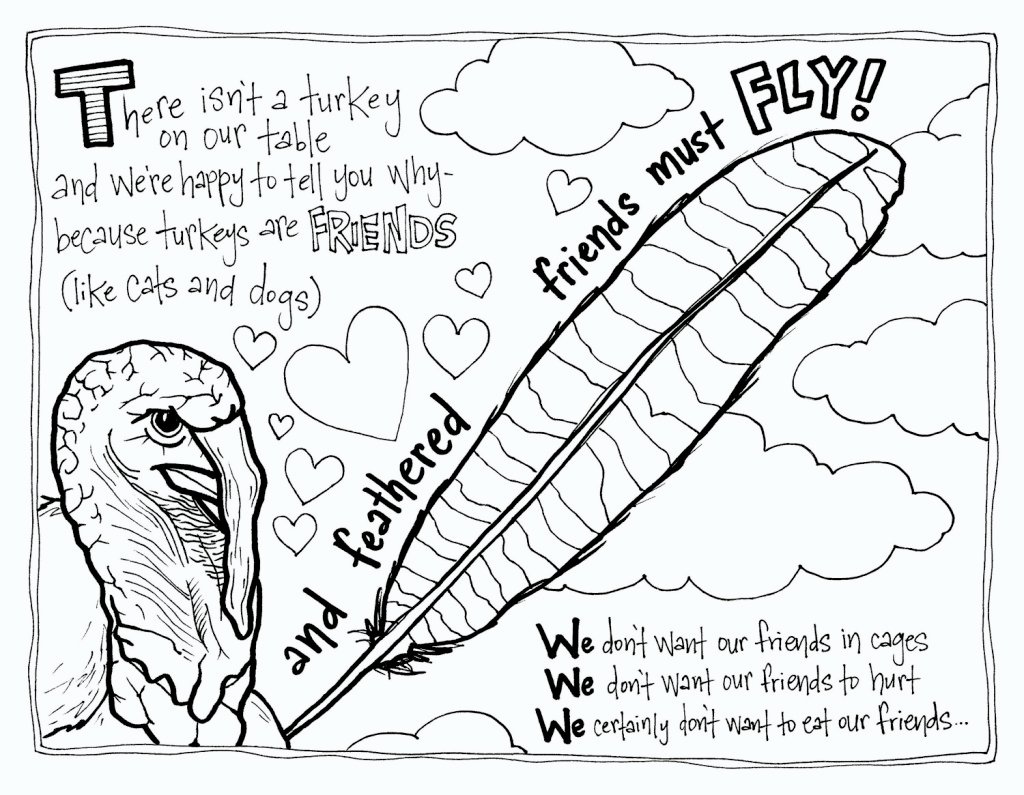 There isn't a turkey
on our table
and we're happy to tell you why-
because turkeys are FRIENDS
(like cats and dogs)
and feathered friends must FLY!
We don't want our friends in cages
We don't want our friends to hurt
We certainly don't want to eat our friends...